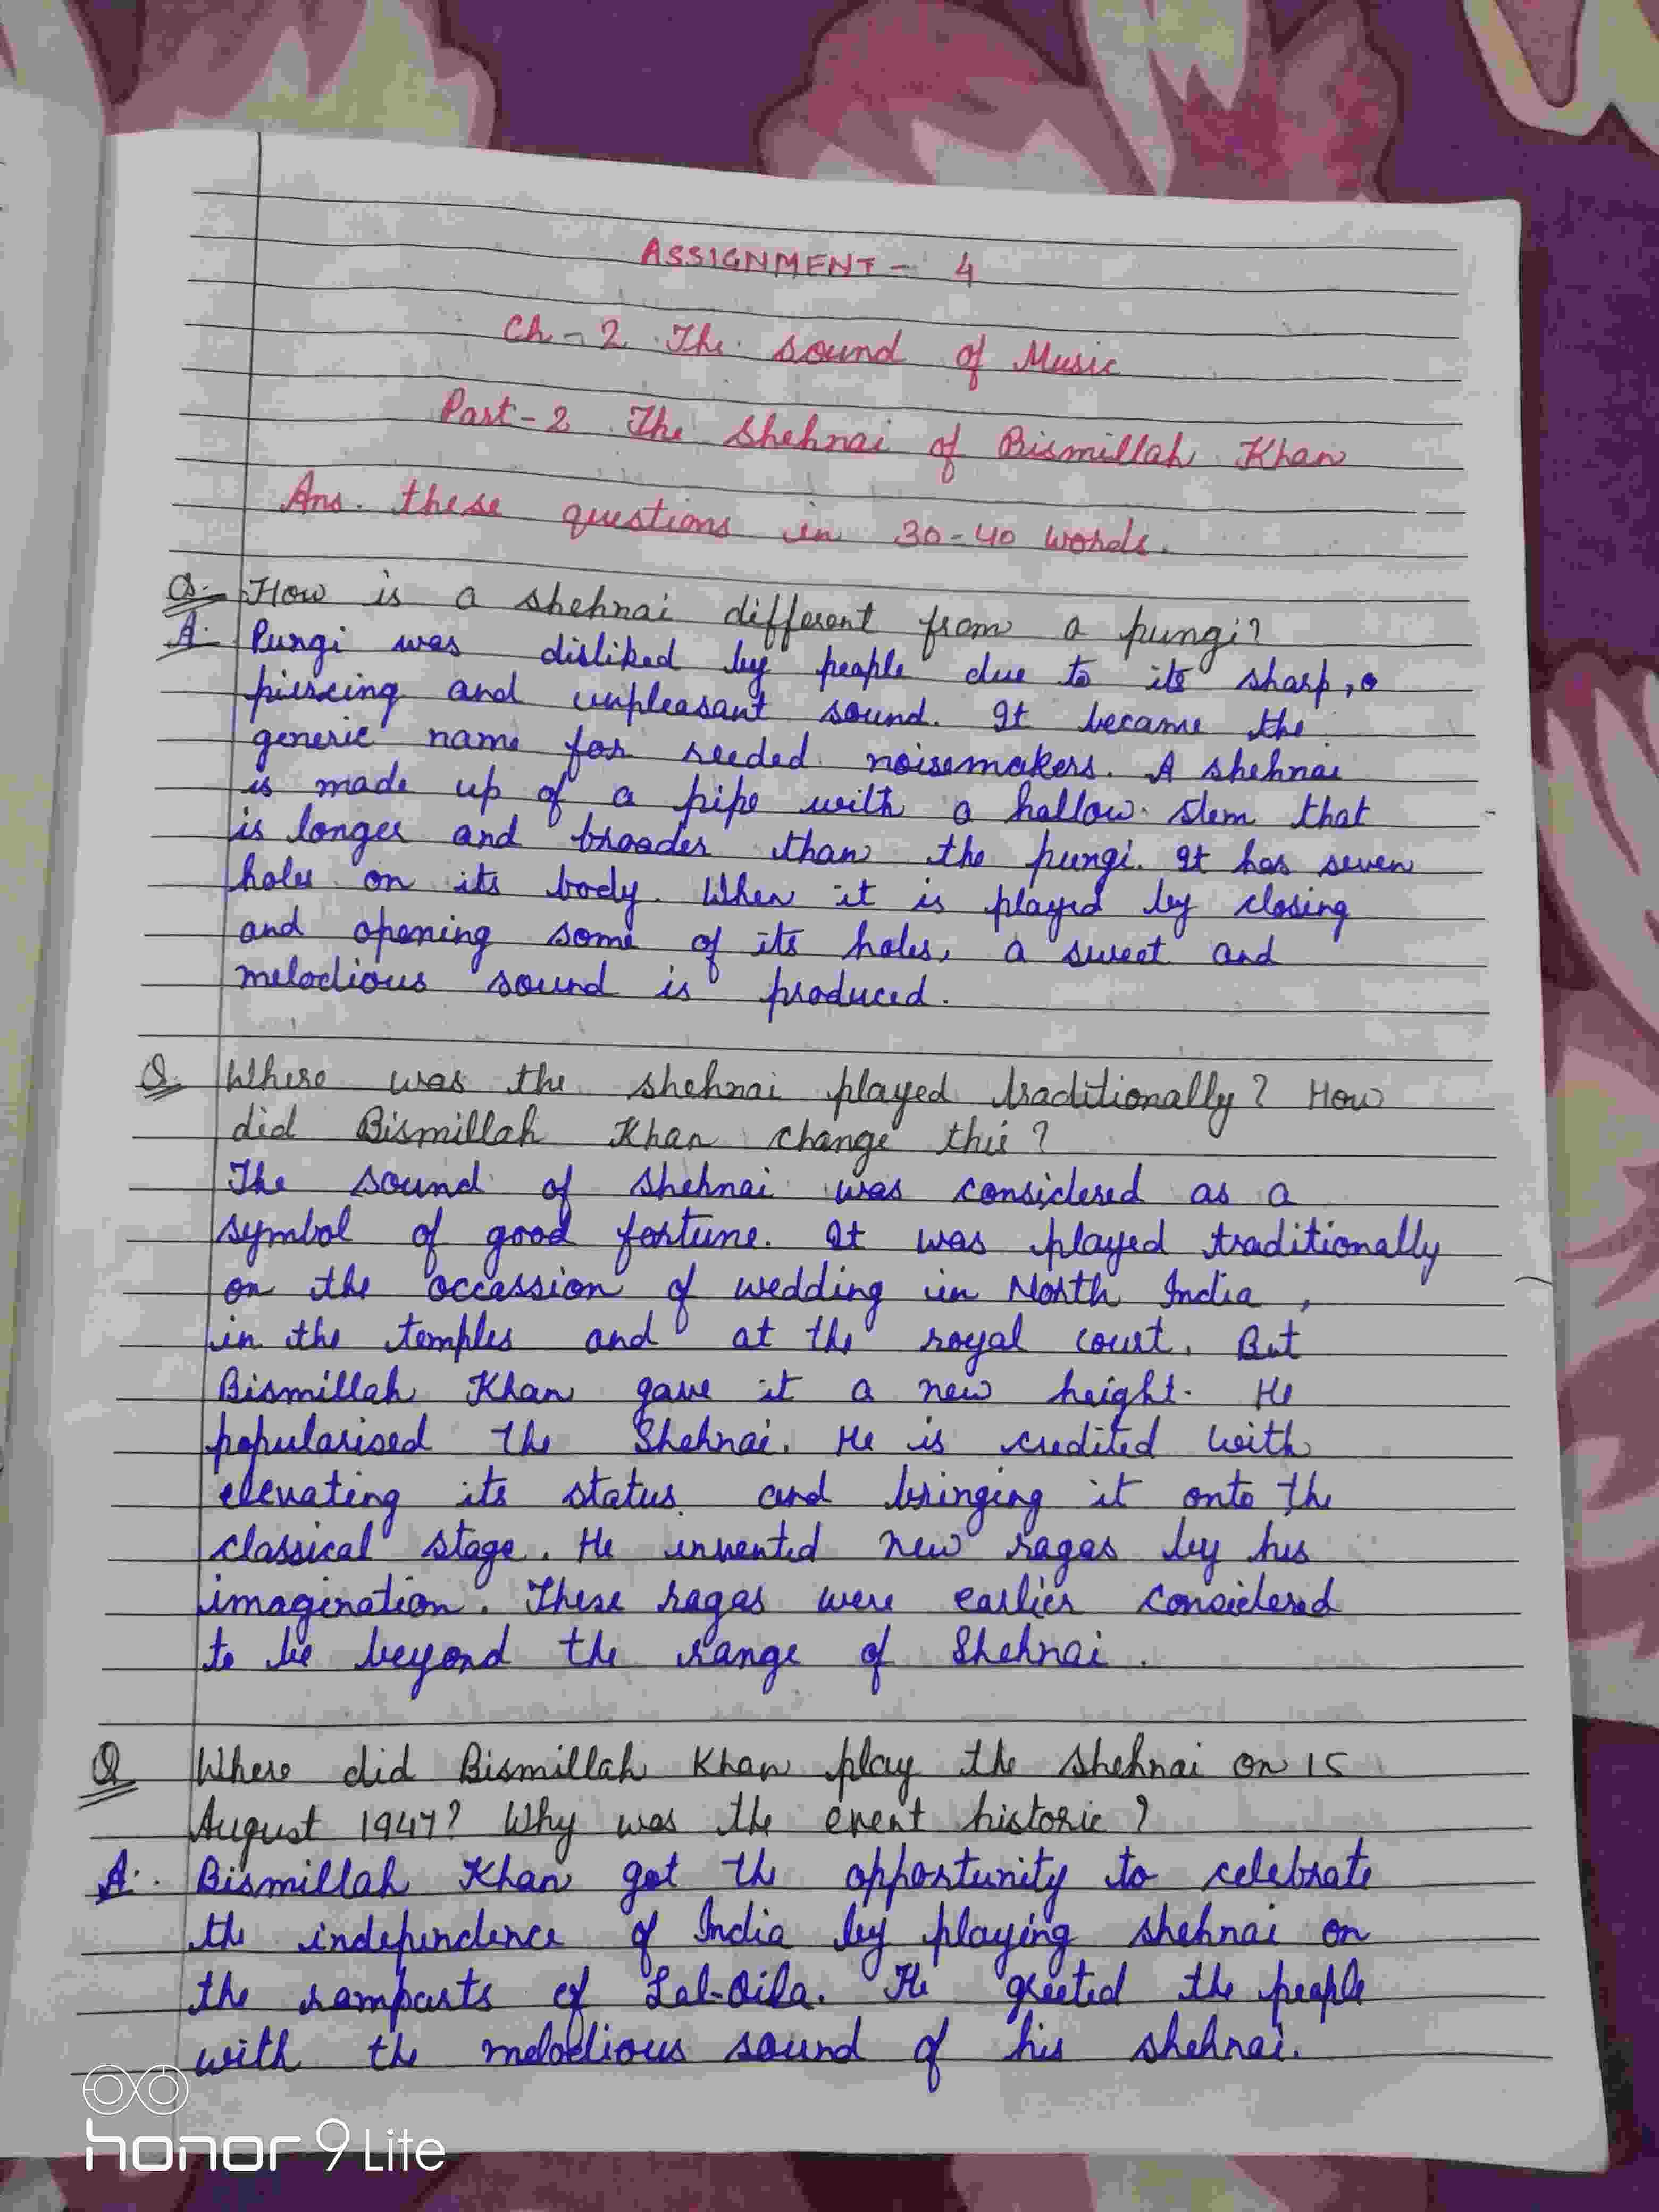 ASSIGNMENT - 4
Ch - 2 The sound of Music
Part - 2 The Shehnai of Bismillah Khan
Ans. these questions in 30-40 words.
Q. How is a shehnai different from a pungi?
A. Pungi was disliked by people due to its sharp,
piercing and unpleasant sound. It became the
generic name for reeded noisemakers. A shehnai
is made up of a pipe with a hallow stem that
is longer and broader than the pungi. It has seven
holes on its body. When it is played by closing
and opening some of its holes, a sweet and
melodious sound is produced.
Q Where was the shehnai played traditionally? How
did Bismillah Khan change this?
The sound of shehnai was considered as a
symbol of good fortune. It was played traditionally
on the occassion of wedding in North India,
in the temples and at the royal court. But
Bismillah Khan gave it a new height. He
popularised the Shehnai. He is credited with
elevating its status and bringing it onto the
classical stage. He invented new ragas by his
imagination. These ragas were earlier considered
to be beyond the range of Shehnai.
Q Where did Bismillah Khan play the shehnai on 15
August 1947? Why was the event historic?
A. Bismillah Khan got the opportunity to celebrate
the independence of India by playing shehnai on
the ramparts of Lal-Qila. He greeted the people
with the melodious sound of his shehnai.
honor 9 Lite